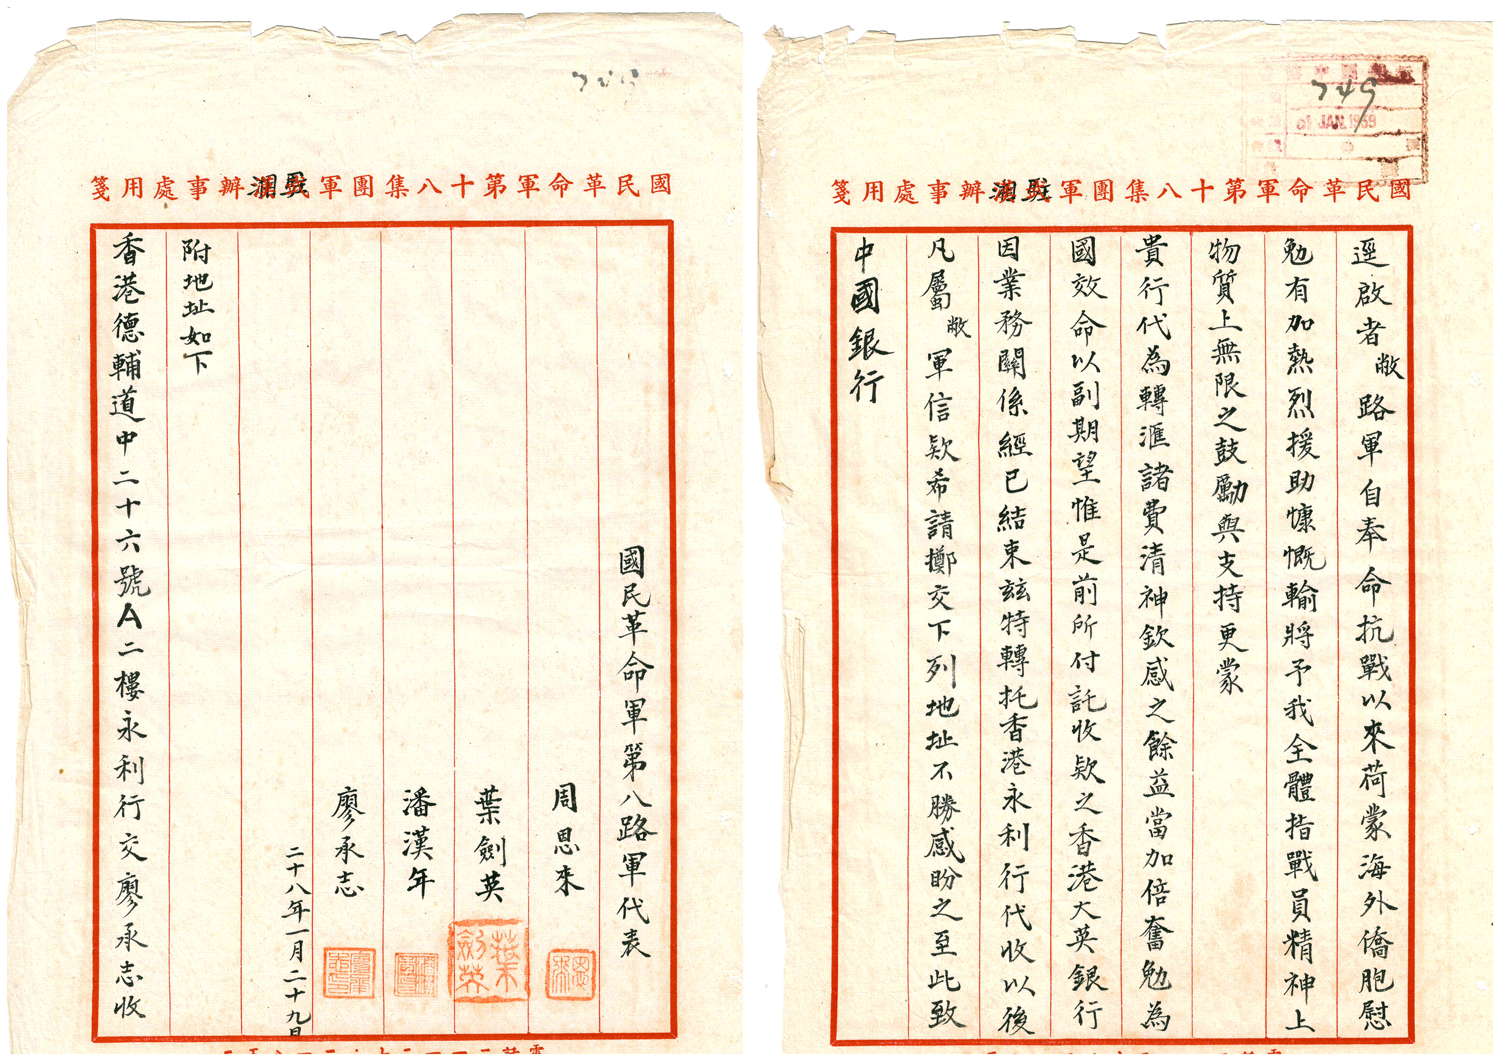 749
JAN. 1939
國民革命軍第十八集團軍駐湘辦事處用箋
逕啟者敝路軍自奉命抗戰以來荷蒙海外僑胞慰
勉有加熱烈援助慷慨輸將予我全體指戰員精神上
物質上無限之鼓勵與支持更蒙
貴行代為轉滙諸費清神欽感之餘益當加倍奮勉為
國效命以副期望惟是前所付託收欵之香港大英銀行
因業務關係經已結束玆特轉托香港永利行代收以後
凡屬敝軍信欵希請擲交下列地址不勝感盼之至此致
中國銀行
國民革命軍第十八集團軍駐湘辦事處用箋
國民革命軍第八路軍代表
周恩來
葉劍英
潘漢年
廖承志
二十八年一月二十九日
附地址如下
香港德輔道中二十六號A二樓永利行交廖承志收
葉劍英